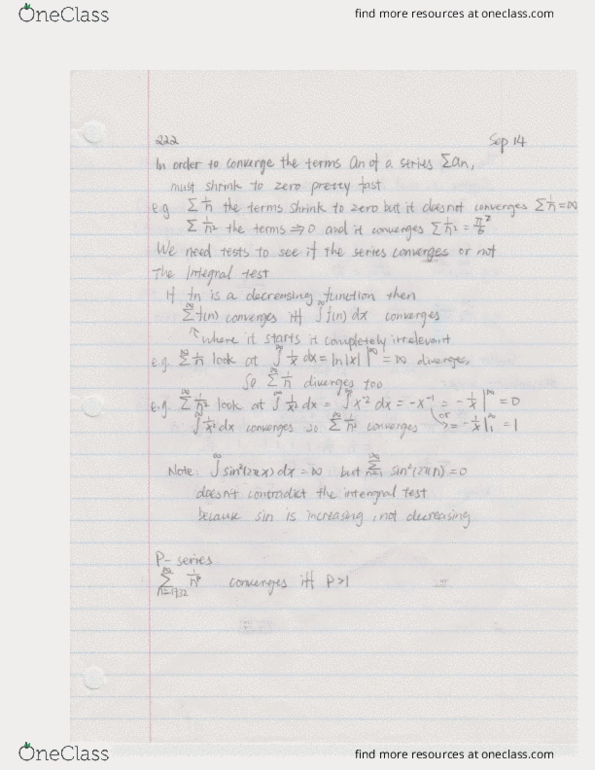 OneClass
find more resources at oneclass.com
222
Sep 14
In order to converge the terms an of a series Σan,
must shrink to zero pretty fast.
e.g Σ 1/n the terms shrink to zero but it doesnot converges Σ 1/n = ∞
Σ 1/n² the terms ⇒ 0 and it converges Σ 1/n² = π²/6
We need tests to see if the series converges or not
The integral test
If fn is a decreasing function then
Σ^∞ f(n) converges iff ∫^∞ f(n) dx converges
↑ where it starts it completely irrelevant
e.g. Σ^∞ 1/n look at ∫^∞ 1/x dx = ln|x| |^∞ = ∞ diverges,
so Σ^∞ 1/n diverges too
e.g. Σ^∞ 1/n² look at ∫^∞ 1/x² dx = ∫^∞ x⁻² dx = -x⁻¹ = -1/x |^∞ = 0
∫^∞ 1/x² dx converges so Σ^∞ 1/n² converges or = -1/x |₁^∞ = 1
Note: ∫^∞ sin²(2πx) dx = ∞ but Σ_{n=1}^∞ sin²(2πn) = 0
doesn't contradict the intengral test
because sin is increasing, not decreasing
P- series
Σ^∞ 1/n^p converges iff P>1
OneClass
find more resources at oneclass.com